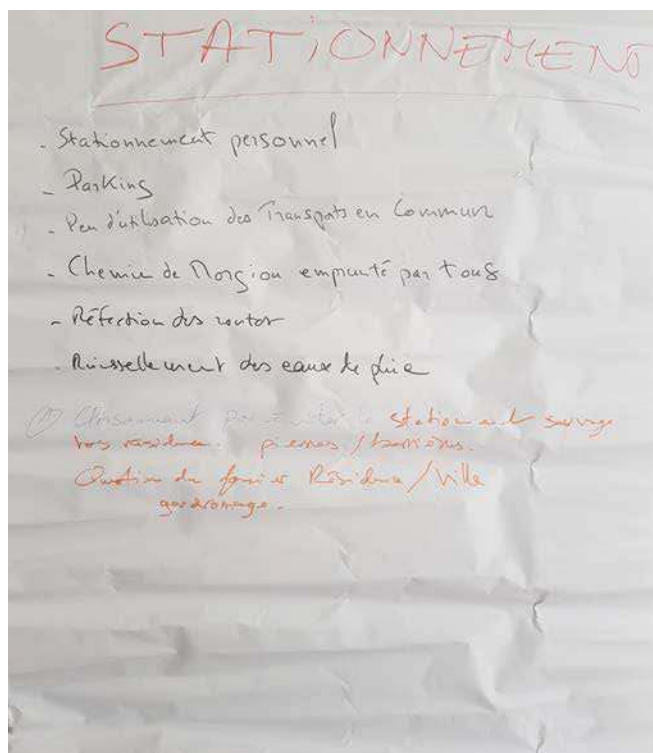 STATiONNEMENT
- Stationnement personnel
- Parking
- Peu d'utilisation des Transports en Commun
- Chemin de Morgiou emprunté par tous
- Réfection des routes
- Ruissellement des eaux de pluie
stationnement sauvage
pierres / barrières.
Question du foncier Résidence / Ville
gardiennage.